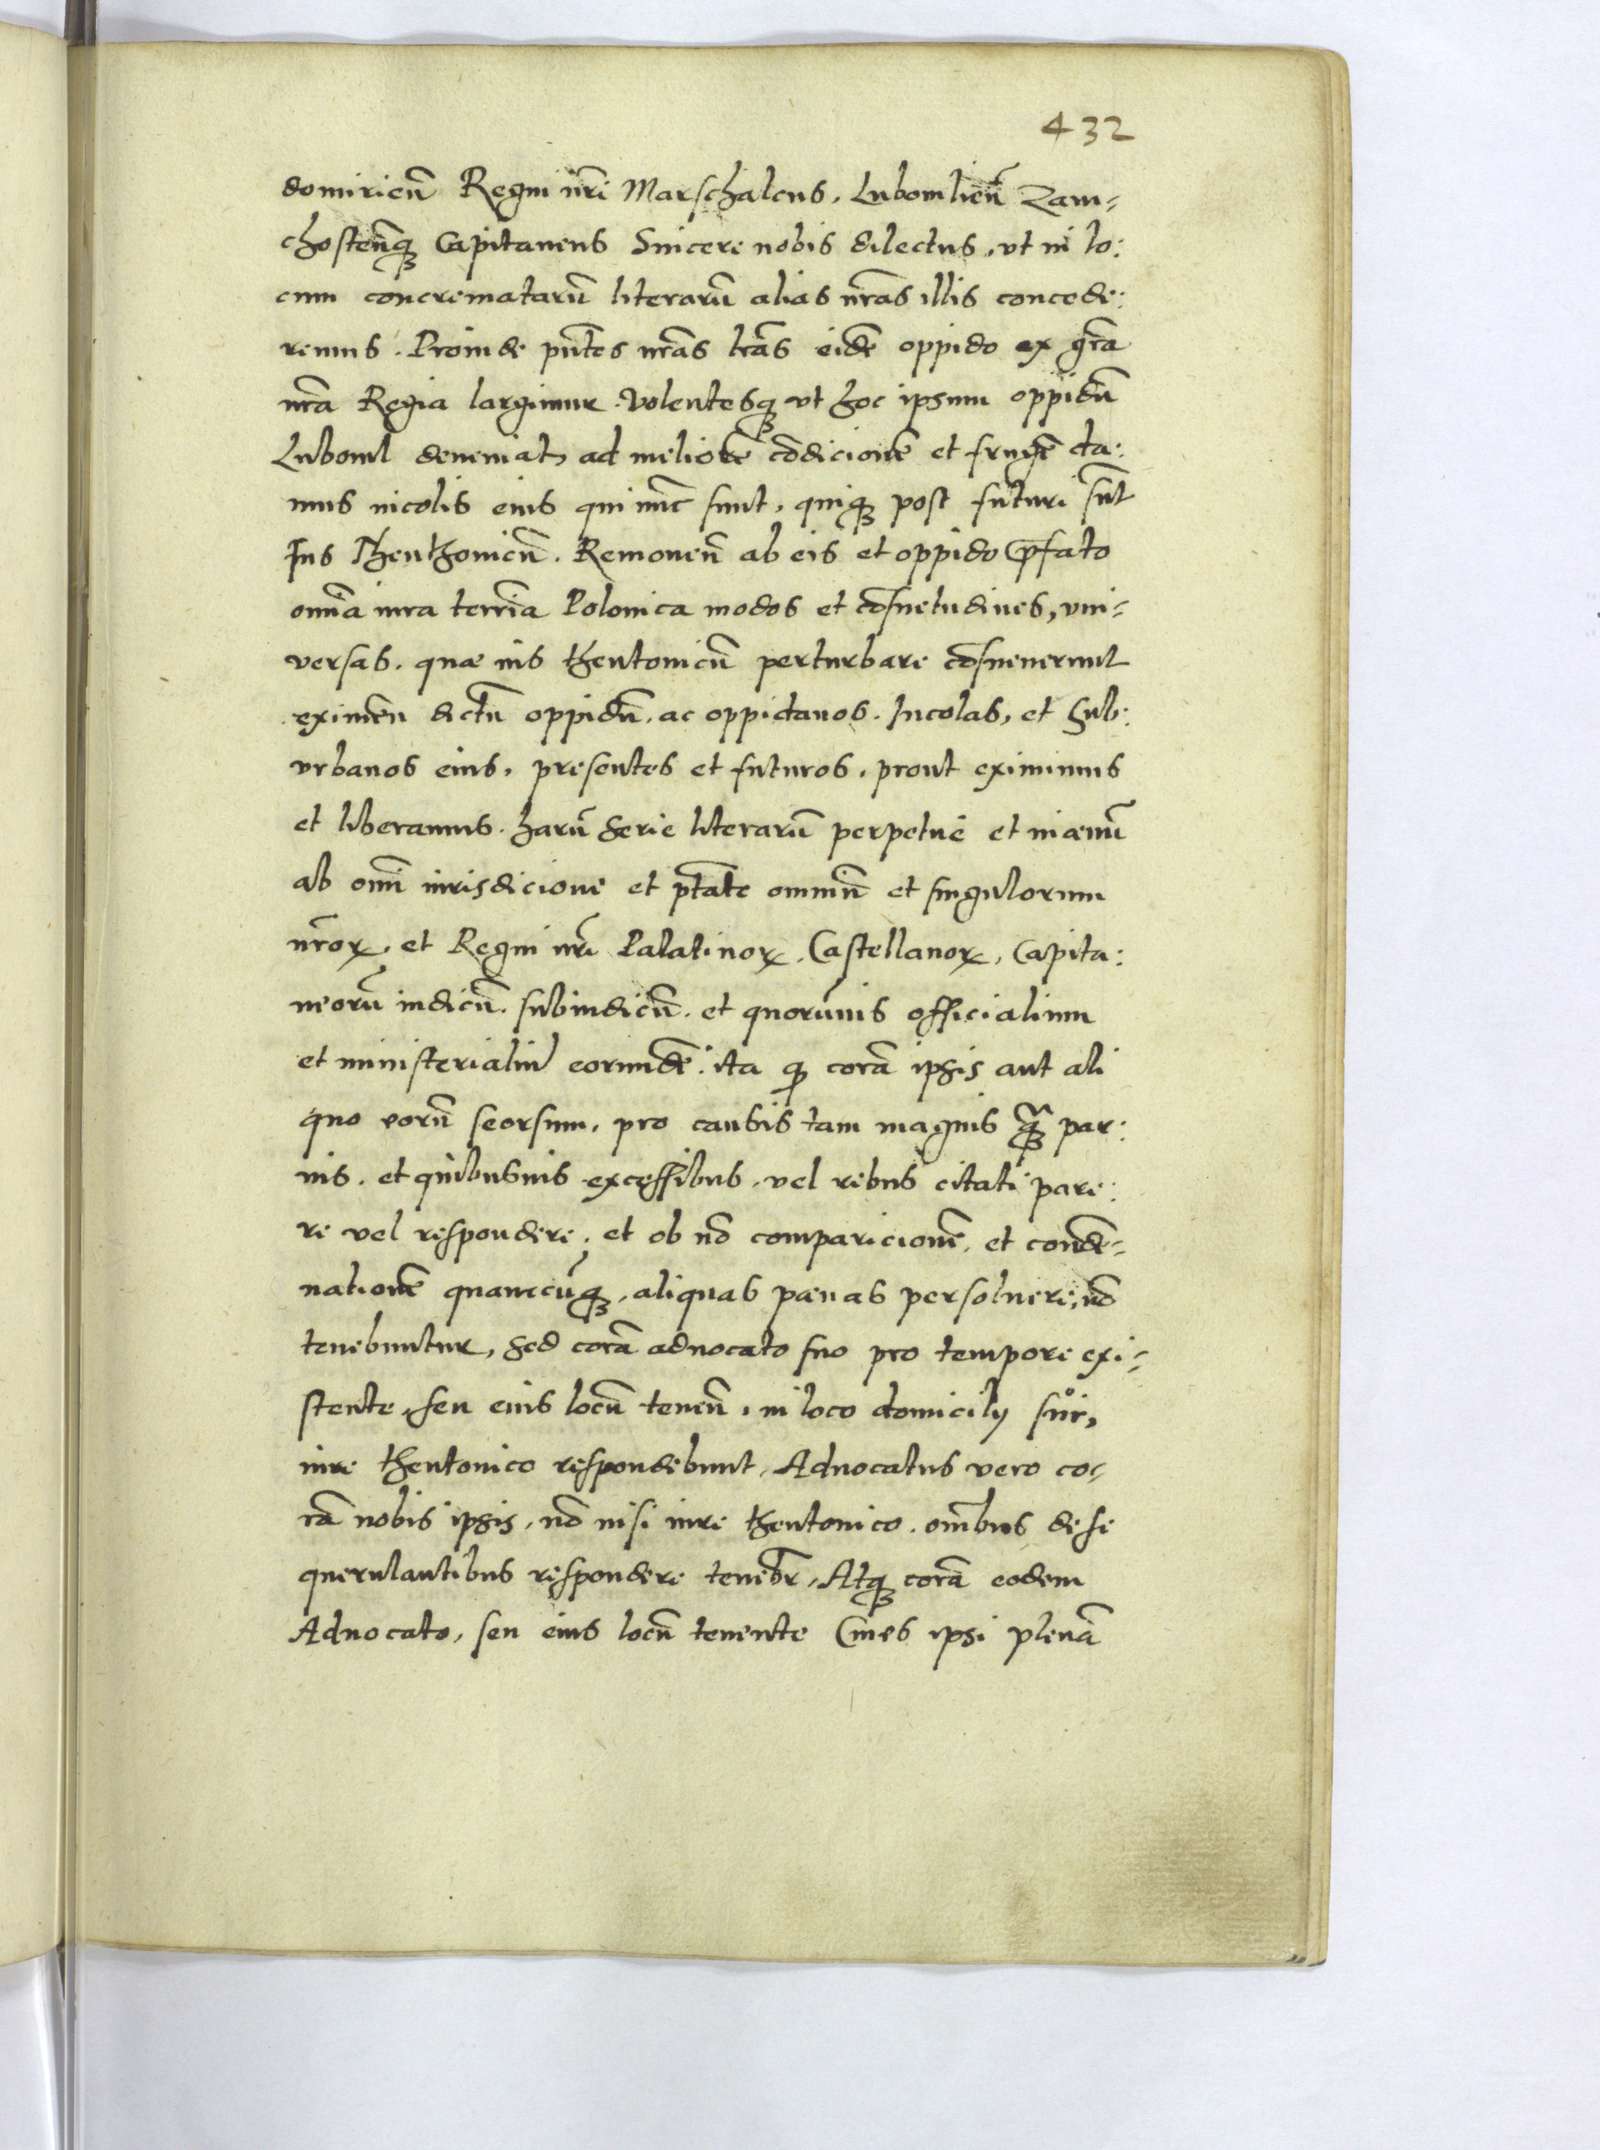 432
domirien̄ Regni nr̄i Marschalcus, Lubomlien̄ Zam-
chosten̄q3 Capitaneus Sincere nobis dilectus, vt in lo:
cum concrematarū literarū alias nr̄as illis concede:
remus. Proinde pn̄tes nr̄as lr̄as eidē oppido ex gr̄a
nr̄a Regia largimur. Volentesq3 vt hoc ipsum oppidū
Luboml deueniat, ad meliorē cōdicionē et frugē da:
mus incolis eius qui nūc sunt, quiq3 post futuri sūt
Ius Theuthonicū. Remouen̄ ab eis et oppido p̄fato
omīa iura terrīa Polonica modos et cōsuetudines, vni-
versas. quæ ius theutonicū perturbare cōsueuerunt
eximen̄ dictū oppidū, ac oppidanos. Incolas, et Sub:
vrbanos eius, presentes et futuros, prout eximimus
et liberamus. harū serie literarū perpetue et in æuū
ab omī iurisdicione et ptāte omniū et singulorum
nr̄orꝝ, et Regni nr̄i Palatinorꝝ, Castellanorꝝ, Capita:
neorū iudicū. subiudicū. et quorūuis officialium
et ministerialiū eorundē. ita q3 corā ipsis aut ali
quo eorū seorsum, pro causis tam magnis q̄3 par:
uis. et quibusuis excessibus, vel rebus citati pare:
re vel respondere, et ob nō comparicionē, et condē-
nationē quamcūq3, aliquas pænas persoluere, nō
tenebuntur, sed corā aduocato suo pro tempore exi-
stente, seu eius locū tenen̄, in loco domicilij suor̄,
iure theutonico respondebunt, Aduocatus vero co-
rā nobis ipsis, nō nisi iure theutonico. omībus de se
querulantibus respondere tenebr̄, Atq3 corā eodem
Aduocato, seu eius locū tenente Ciues ipsi plenā